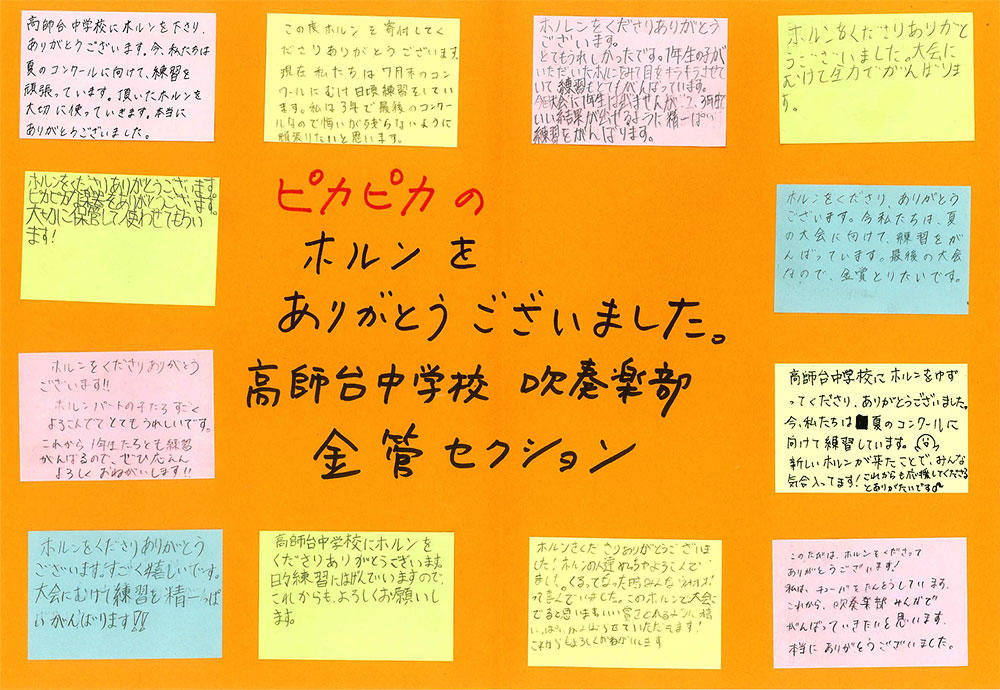 高師台中学校にホルンを下さり、
ありがとうございます。今、私たちは
夏のコンクールに向けて、練習を
頑張っています。頂いたホルンを
大切に使っていきます。本当に
ありがとうございました。
この度ホルンを寄付してく
ださりありがとうございます。
現在私たちは7月末のコン
クールにむけ日頃練習をしてい
ます。私は3年で最後のコンクー
ルなので悔いが残らないように
頑張りたいと思います。
ホルンをくださりありがとう
ございます。
とてもうれしかったです。1年生の子が
いただいたホルンを 目をキラキラさせて
いて練習をとてもがんばっています。
大会に1年生は出ませんが、2、3年生で
いい結果が出せるように精一ぱい
練習をがんばります。
ホルンをくださりありがと
うございました。大会に
むけて全力でがんばりま
す。
ホルンをくださりありがとうございます。
ピカピカな楽器をありがとうございます。
大切に保管して使わせてもらい
ます!
ピカピカの
ホルンを
ありがとうございました。
高師台中学校 吹奏楽部
金管セクション
ホルンをくださり、ありがとう
ございます。今私たちは、夏
の大会に向けて、練習をが
んばっています。最後の大会
なので、金賞とりたいです。
ホルンをくださりありがとう
ございます!!
ホルンパートの子たちすごく
よろこんでてとてもうれしいです。
これから1年生たちとも練習
がんばるので、ぜひたえん
よろしくおねがいします!!
高師台中学校にホルンをゆず
ってくださり、ありがとうございました。
今、私たちは夏のコンクールに
向けて練習しています。
新しいホルンが来たことで、みんな
気合入ってます!これからも応援してくださる
とありがたいです♪
ホルンをくださりありがとう
ございます。すごく嬉しいです。
大会にむけて練習を精一っぱ
いがんばります!!
高師台中学校にホルンを
くださりありがとうございます。
日々練習にはげんでいいますので、
これからも、よろしくお願いし
ます。
ホルンをくださりありがとうございま
した!ホルンの人達めちゃめちゃよろこんでい
ました。
って喜んでいました。このホルンで大会に
でると思います。
いっぱい させていただきます!
これからもよろしくおねがいします
このたびは、ホルンをくださって
ありがとうございます!
私は、チューバをたんとうしています。
これから、吹奏楽部みんなで
がんばっていきたいと思います。
本当にありがとうございました。